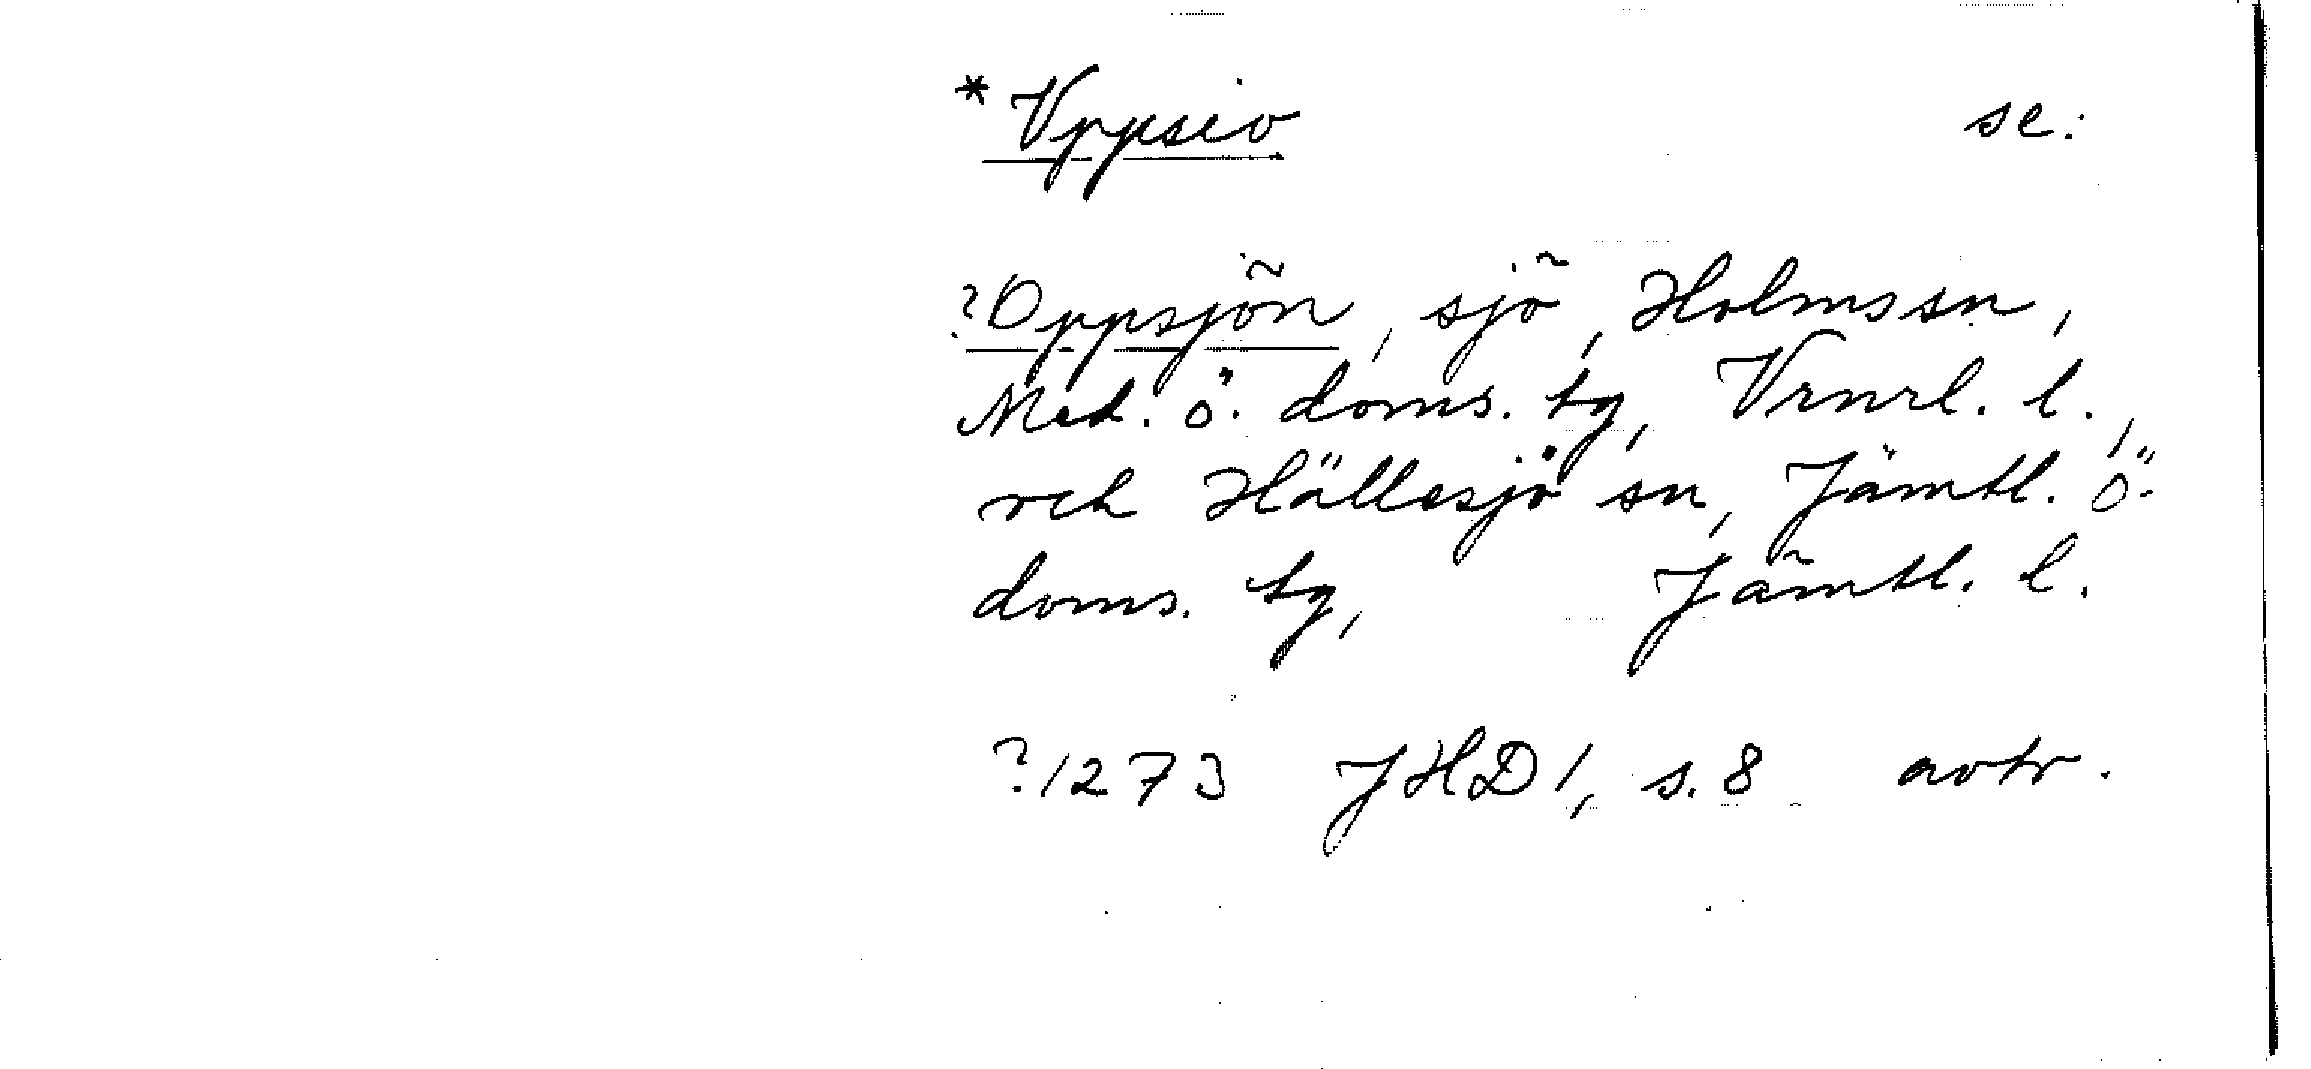 * Vppsio se:
?Oppsjön, sjö, Holms sn,
Med. ö. doms. tg, Vrnrl. l.,
och Hällesjö sn, Jämtl. ö.
doms. tg, Jämtl. l.
?1273 JHD 1, s. 8 avtr.